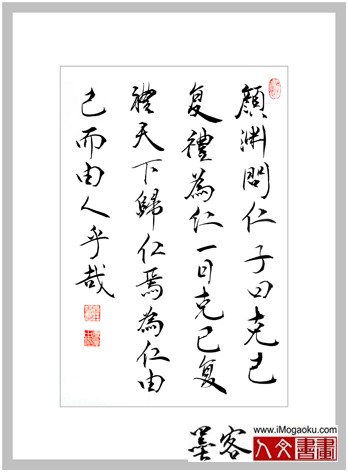 顏淵問仁子曰克己
復禮為仁一日克己復
禮天下歸仁焉為仁由
己而由人乎哉
www.iMogaoku.com
墨客
人文書畫